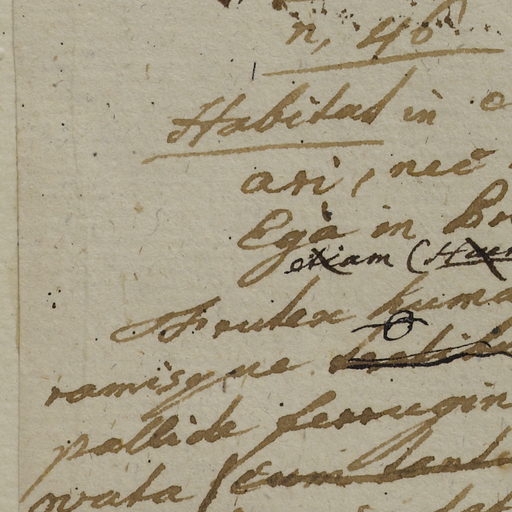 n, 46
Habitat in
ari, nec
Ega in Br
etiam (
Frutex huma
ramisque
pallide ferrugin
vata (cum